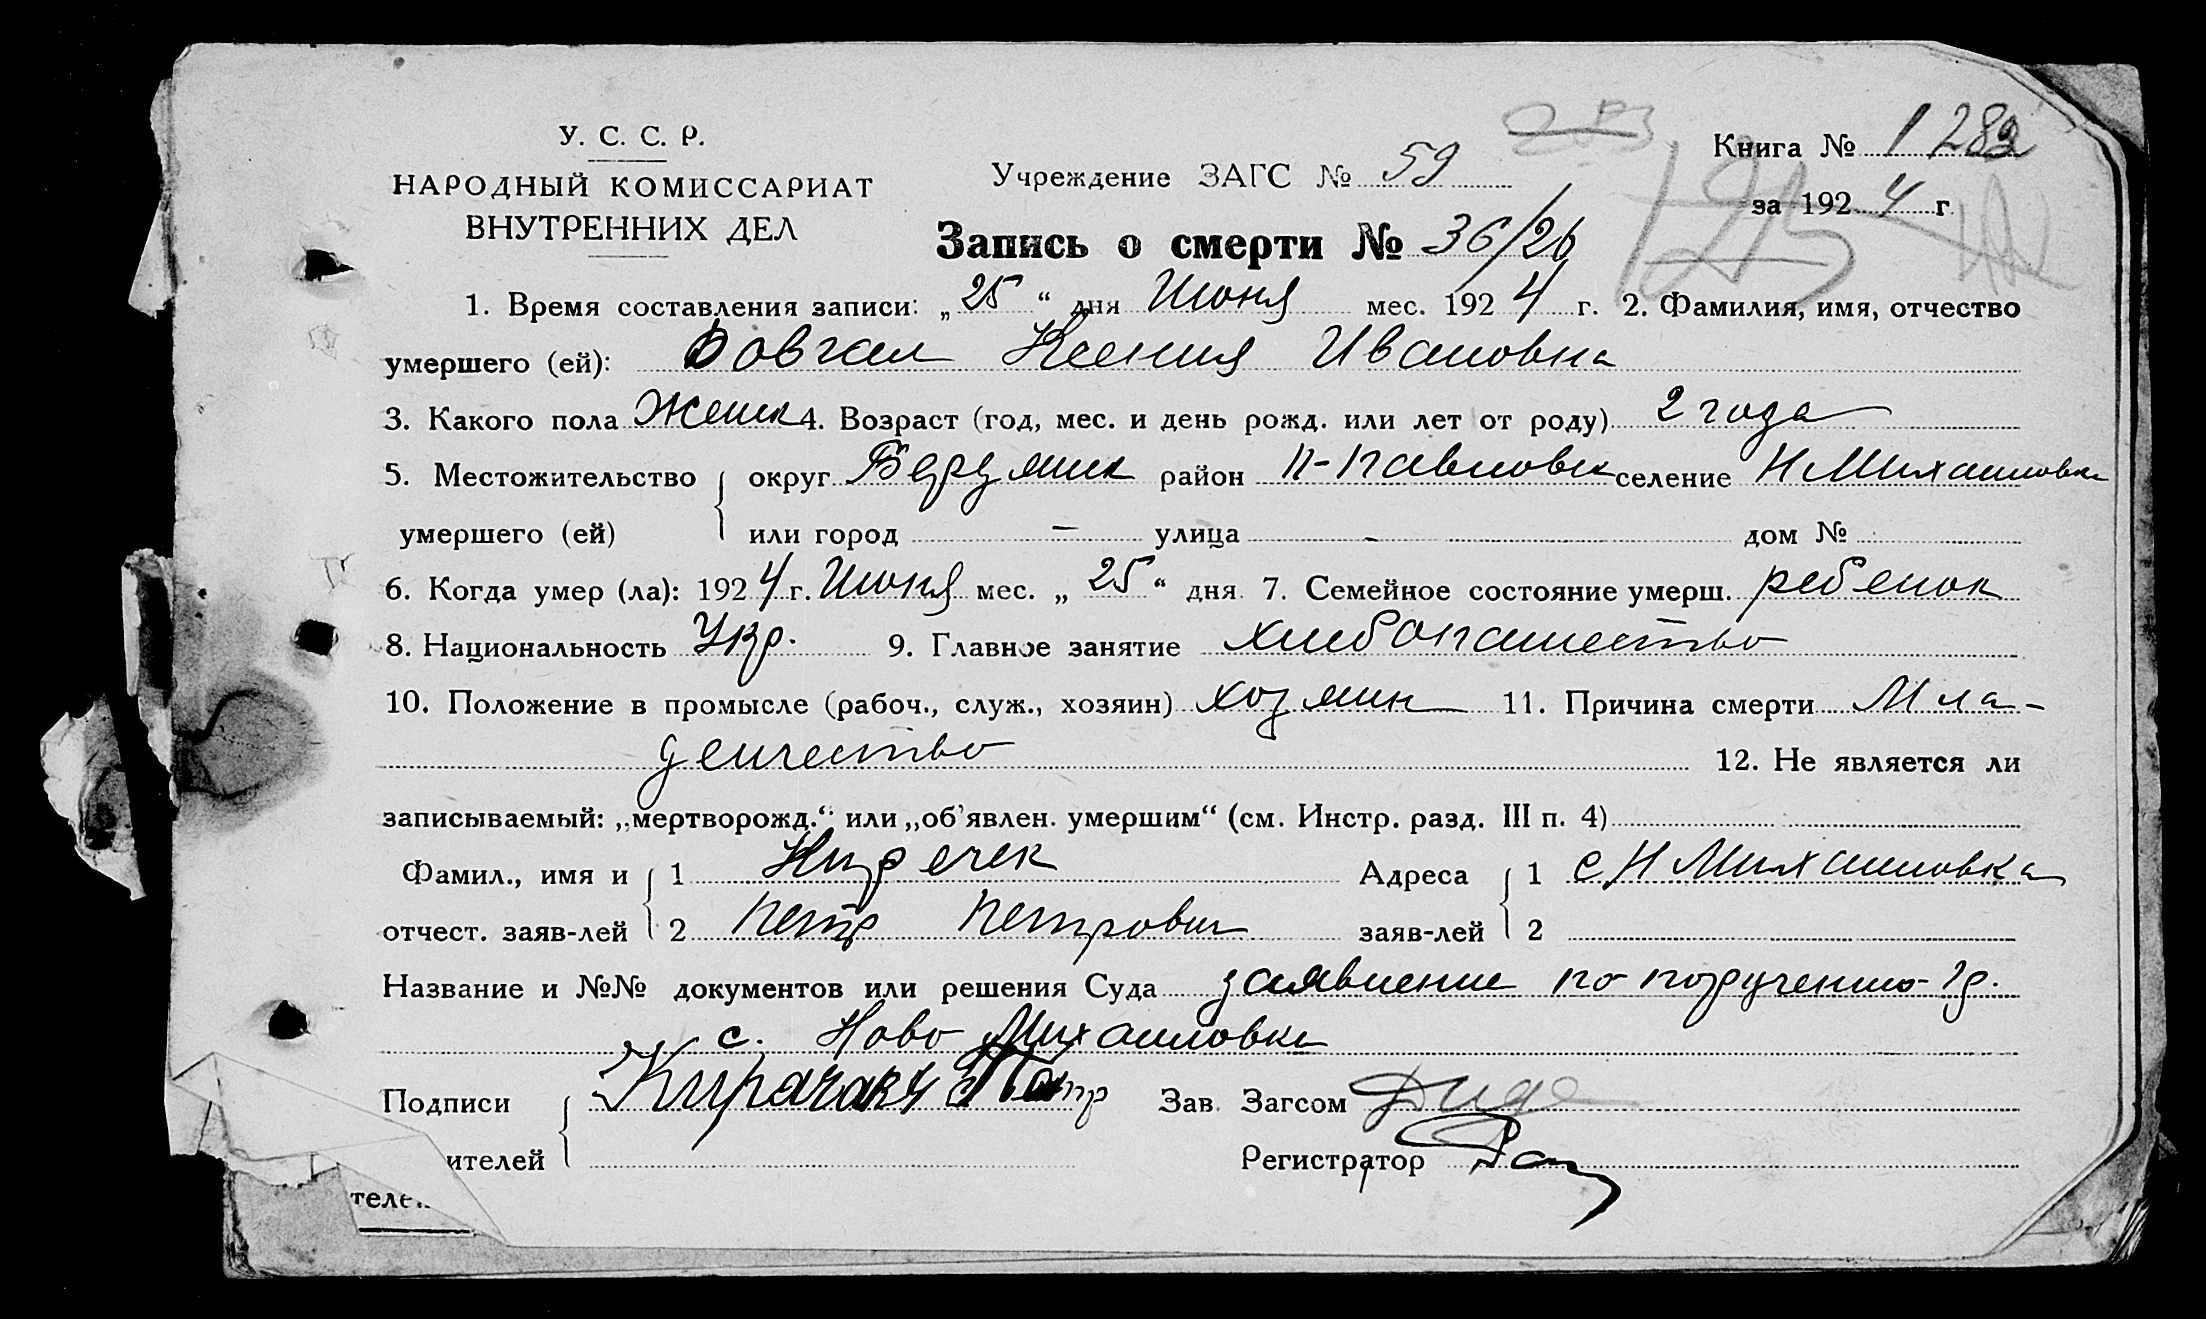 У. С. С. Р.
НАРОДНЫЙ КОМИССАРИАТ
ВНУТРЕННИХ ДЕЛ
Учреждение ЗАГС № 59
Книга № 1 282
за 1924 г.
Запись о смерти № 36/26
1. Время составления записи: „25“ дня Июня мес. 1924 г. 2. Фамилия, имя, отчество
умершего (ей): Довгал Ксения Ивановна
3. Какого пола Женск 4. Возраст (год, мес. и день рожд. или лет от роду) 2 года
5. Местожительство округ Бердянск район П-Павловск селение Н Михайловка
умершего (ей) или город — улица - дом №
6. Когда умер (ла): 1924 г. Июня мес. „25“ дня 7. Семейное состояние умерш. ребенок
8. Национальность Укр. 9. Главное занятие хлебопашество
10. Положение в промысле (рабоч., служ., хозяин) хозяин 11. Причина смерти Мла-
денчество 12. Не является ли
записываемый: „мертворожд.“ или „об'явлен. умершим“ (см. Инстр. разд. III п. 4)
Фамил., имя и 1 Адреса 1 с Н Михайловка
отчест. заяв-лей 2 Петр Петрович заяв-лей 2
Название и №№ документов или решения Суда заявление по поручению гр.
с. Ново Михайловки
Подписи Петр Зав. Загсом
ителей Регистратор
теле